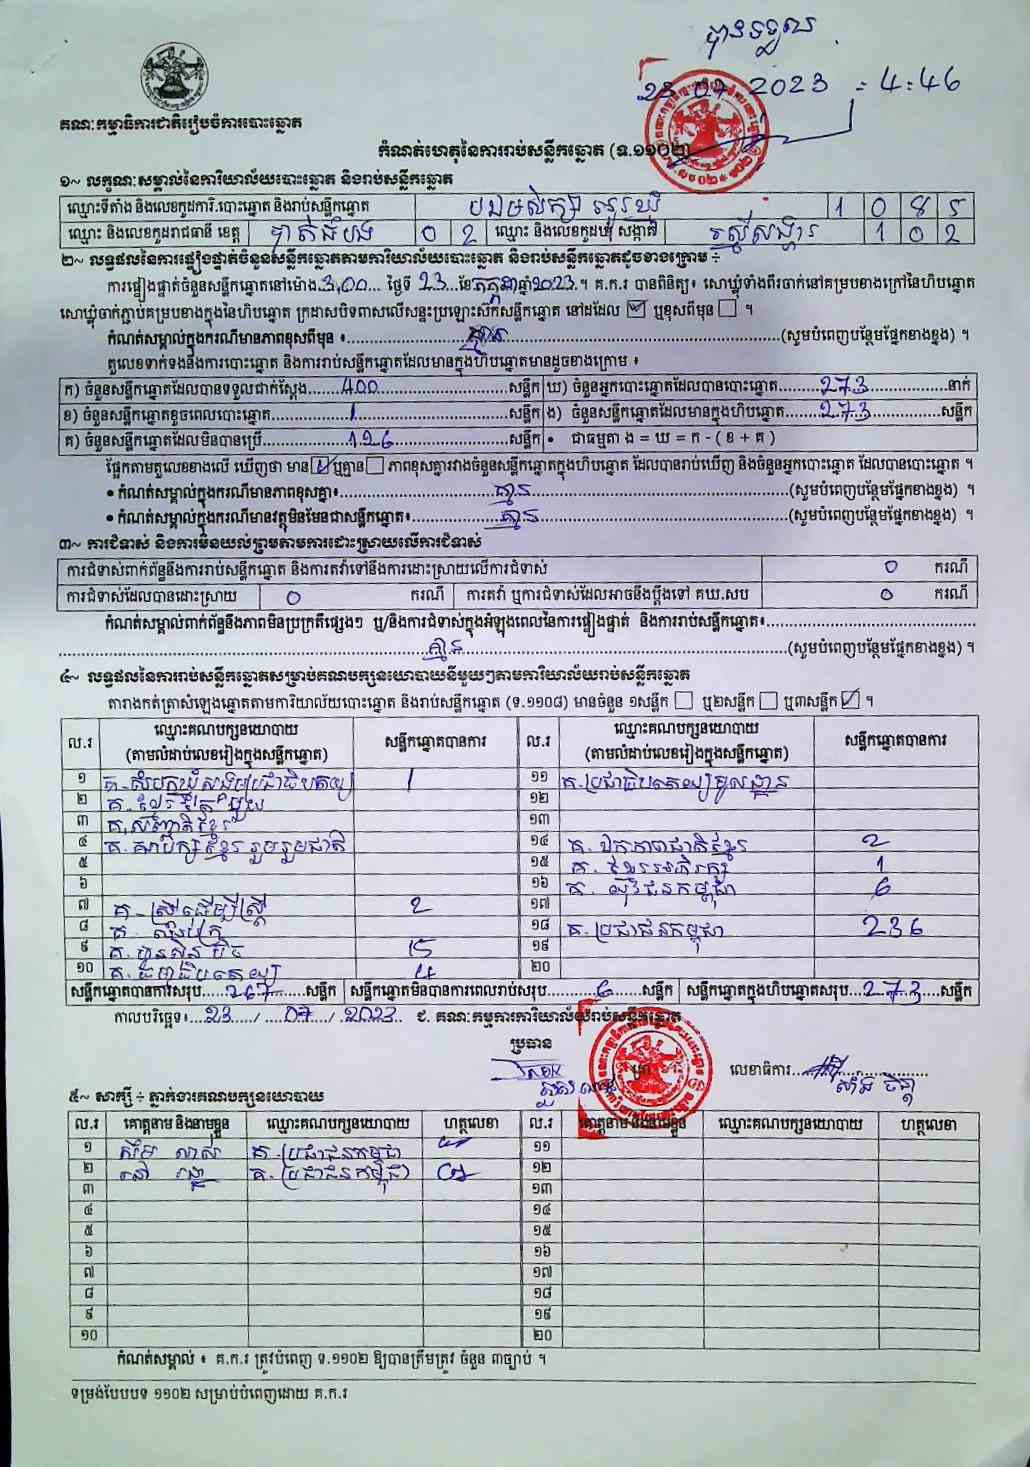 បានទទួល
23 07 2023 : 4:46
គណៈកម្មាធិការជាតិរៀបចំការបោះឆ្នោត
កំណត់ហេតុនៃការរាប់សន្លឹកឆ្នោត (ទ.១១០២)
១~ លក្ខណៈសម្គាល់នៃការិយាល័យបោះឆ្នោត និងរាប់សន្លឹកឆ្នោត
ឈ្មោះទីតាំង និងលេខកូដការិ.បោះឆ្នោត និងរាប់សន្លឹកឆ្នោត 1 0 4 5
ឈ្មោះ និងលេខកូដរាជធានី ខេត្ត បាត់ដំបង 0 2 ឈ្មោះ និងលេខកូដឃុំ សង្កាត់ រស្មីសង្ហារ 1 0 2
២~ លទ្ធផលនៃការផ្ទៀងផ្ទាត់ចំនួនសន្លឹកឆ្នោតតាមការិយាល័យបោះឆ្នោត និងរាប់សន្លឹកឆ្នោតដូចខាងក្រោម ÷
ការផ្ទៀងផ្ទាត់ចំនួនសន្លឹកឆ្នោតនៅម៉ោង 3,00 ថ្ងៃទី 23 ខែ កក្កដា ឆ្នាំ 2023 ។ គ.ក.រ បានពិនិត្យ៖ សោឃ្លុំទាំងពីរចាក់នៅគម្របខាងក្រៅនៃហិបឆ្នោត
សោឃ្លុំចាក់ភ្ជាប់គម្របខាងក្នុងនៃហិបឆ្នោត ក្រដាសបិទពាសលើសន្ទះប្រឡោះសឹកសន្លឹកឆ្នោត នៅដដែល ☑ ឬខុសពីមុន ☐ ។
កំណត់សម្គាល់ក្នុងករណីមានភាពខុសពីមុន ៖ គ្មាន (សូមបំពេញបន្ថែមផ្នែកខាងខ្នង) ។
តួលេខទាក់ទងនឹងការបោះឆ្នោត និងការរាប់សន្លឹកឆ្នោតដែលមានក្នុងហិបឆ្នោតមានដូចខាងក្រោម ៖
ក) ចំនួនសន្លឹកឆ្នោតដែលបានទទួលជាក់ស្តែង 400 សន្លឹក ឃ) ចំនួនអ្នកបោះឆ្នោតដែលបានបោះឆ្នោត 273 នាក់
ខ) ចំនួនសន្លឹកឆ្នោតខូចពេលបោះឆ្នោត 1 សន្លឹក ង) ចំនួនសន្លឹកឆ្នោតដែលមានក្នុងហិបឆ្នោត 273 សន្លឹក
គ) ចំនួនសន្លឹកឆ្នោតដែលមិនបានប្រើ 126 សន្លឹក • ជាធម្មតា ង = ឃ = ក - ( ខ + គ )
ផ្អែកតាមតួលេខខាងលើ ឃើញថា មាន ☑ ឬគ្មាន ☐ ភាពខុសគ្នារវាងចំនួនសន្លឹកឆ្នោតក្នុងហិបឆ្នោត ដែលបានរាប់ឃើញ និងចំនួនអ្នកបោះឆ្នោត ដែលបានបោះឆ្នោត ។
• កំណត់សម្គាល់ក្នុងករណីមានភាពខុសគ្នា៖ គ្មាន (សូមបំពេញបន្ថែមផ្នែកខាងខ្នង) ។
• កំណត់សម្គាល់ក្នុងករណីមានវត្ថុមិនមែនជាសន្លឹកឆ្នោត៖ គ្មាន (សូមបំពេញបន្ថែមផ្នែកខាងខ្នង) ។
៣~ ការជំទាស់ និងការមិនយល់ព្រមតាមការដោះស្រាយលើការជំទាស់
ការជំទាស់ពាក់ព័ន្ធនឹងការរាប់សន្លឹកឆ្នោត និងការតវ៉ាទៅនឹងការដោះស្រាយលើការជំទាស់ 0 ករណី
ការជំទាស់ដែលបានដោះស្រាយ 0 ករណី ការតវ៉ា ឬការជំទាស់ដែលអាចនឹងប្តឹងទៅ គឃ.សប 0 ករណី
កំណត់សម្គាល់ពាក់ព័ន្ធនឹងភាពមិនប្រក្រតីផ្សេងៗ ឬ/និងការជំទាស់ក្នុងអំឡុងពេលនៃការផ្ទៀងផ្ទាត់ និងការរាប់សន្លឹកឆ្នោត៖
គ្មាន (សូមបំពេញបន្ថែមផ្នែកខាងខ្នង) ។
៤~ លទ្ធផលនៃការរាប់សន្លឹកឆ្នោតសម្រាប់គណបក្សនយោបាយនីមួយៗតាមការិយាល័យរាប់សន្លឹកឆ្នោត
តារាងកត់ត្រាសំឡេងឆ្នោតតាមការិយាល័យបោះឆ្នោត និងរាប់សន្លឹកឆ្នោត (ទ.១១០៨) មានចំនួន ១សន្លឹក ☐ ឬ២សន្លឹក ☐ ឬ៣សន្លឹក ☑ ។
ល.រ ឈ្មោះគណបក្សនយោបាយ (តាមលំដាប់លេខរៀងក្នុងសន្លឹកឆ្នោត) សន្លឹកឆ្នោតបានការ ល.រ ឈ្មោះគណបក្សនយោបាយ (តាមលំដាប់លេខរៀងក្នុងសន្លឹកឆ្នោត) សន្លឹកឆ្នោតបានការ
១ គ. សំបុកឃ្មុំសង្គមប្រជាធិបតេយ្យ 1 ១១ គ.ប្រជាធិបតេយ្យមូលដ្ឋាន
២ គ. ខ្មែរតែមួយ ១២
៣ គ. សញ្ជាតិខ្មែរ ១៣
៤ គ. កម្ពុជា ខ្មែរ រួបរួមជាតិ ១៤ គ. ឯកភាពជាតិខ្មែរ 2
៥ ១៥ គ. ខ្មែរអភិរក្ស 1
៦ ១៦ គ. យុវជនកម្ពុជា 6
៧ គ. ស្រ្តីដើម្បីស្ត្រី 2 ១៧
៨ ១៨ គ.ប្រជាជនកម្ពុជា 236
៩ គ. ហ្វ៊ុនស៊ិនប៉ិច 15 ១៩
១០ គ. ធម្មាធិបតេយ្យ 4 ២០
សន្លឹកឆ្នោតបានការសរុប 267 សន្លឹក សន្លឹកឆ្នោតមិនបានការពេលរាប់សរុប 6 សន្លឹក សន្លឹកឆ្នោតក្នុងហិបឆ្នោតសរុប 273 សន្លឹក
កាលបរិច្ឆេទ៖ 23 / 07 / 2023 ជ. គណៈកម្មការការិយាល័យរាប់សន្លឹកឆ្នោត
ប្រធាន
លេខាធិការ
៥~ សាក្សី ÷ ភ្នាក់ងារគណបក្សនយោបាយ
ល.រ គោត្តនាម និងនាមខ្លួន ឈ្មោះគណបក្សនយោបាយ ហត្ថលេខា ល.រ គោត្តនាម និងនាមខ្លួន ឈ្មោះគណបក្សនយោបាយ ហត្ថលេខា
១ គ. ប្រជាជនកម្ពុជា ១១
២ គ. ប្រជាជនកម្ពុជា ១២
៣ ១៣
៤ ១៤
៥ ១៥
៦ ១៦
៧ ១៧
៨ ១៨
៩ ១៩
១០ ២០
កំណត់សម្គាល់ ៖ គ.ក.រ ត្រូវបំពេញ ទ.១១០២ ឱ្យបានត្រឹមត្រូវ ចំនួន ៣ច្បាប់ ។
ទម្រង់បែបបទ ១១០២ សម្រាប់បំពេញដោយ គ.ក.រ